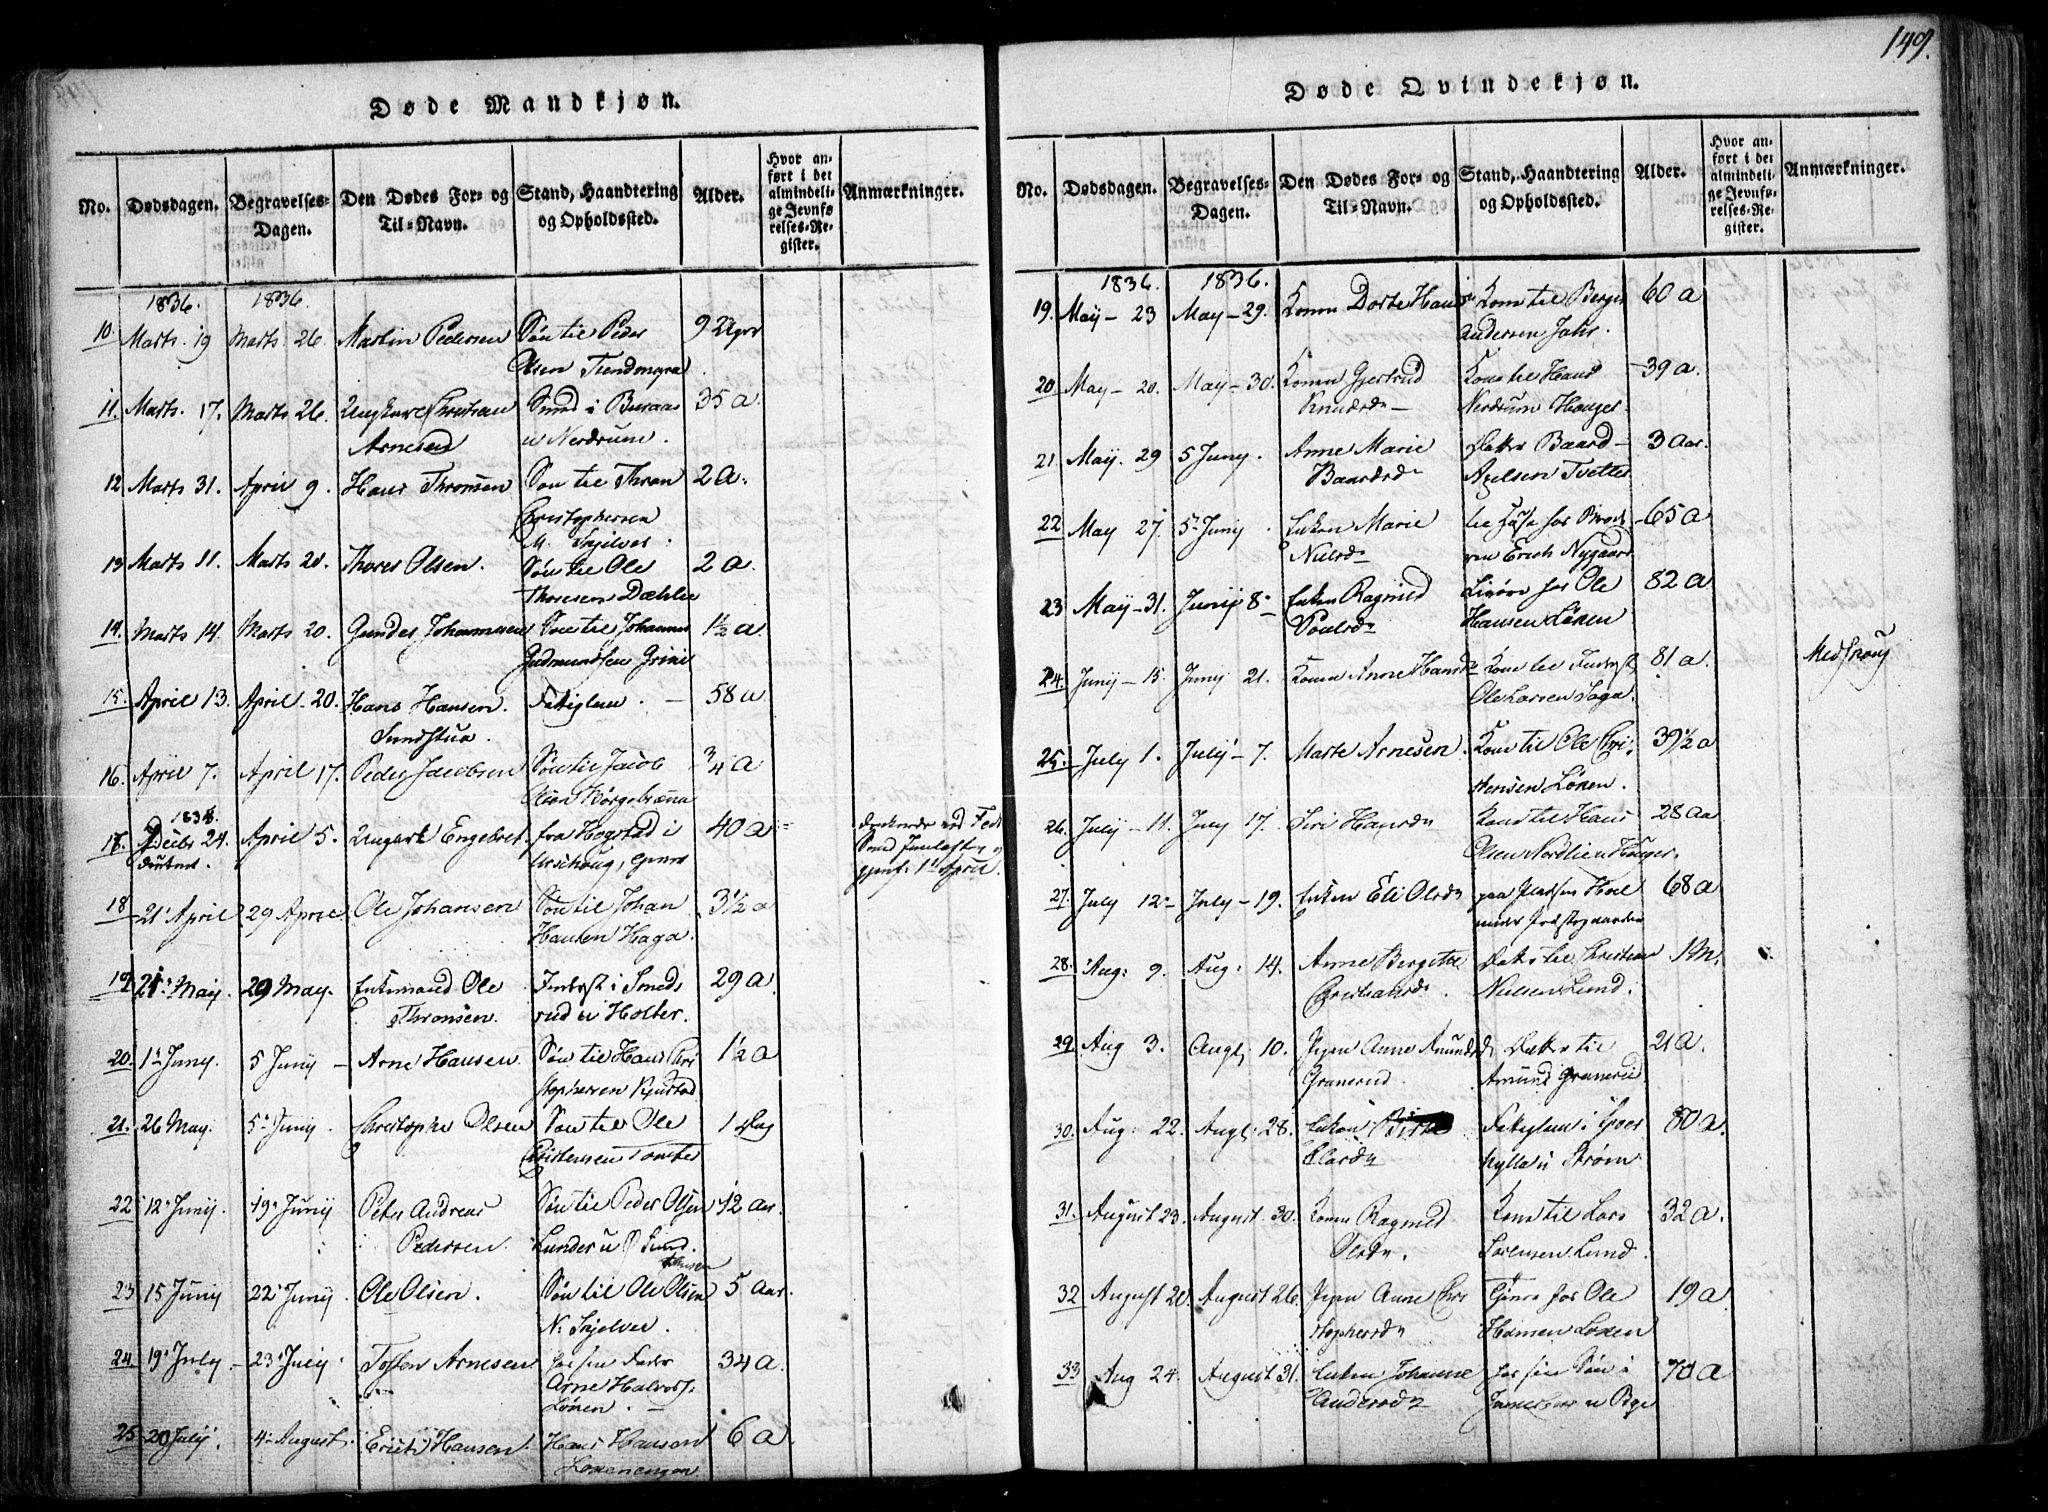 149.
Døde Mandkjøn.
No. Dødsdagen. Begravelses-Dagen. Den Dødes For- og Til-Navn. Stand, Haandtering og Opholdssted. Alder. Hvor anført i det almindelige Jevnførelses-Register. Anmærkninger.
1836. 1836.
10. Marts. 19 Marts. 26. Martin Pedersen Søn til Peder 9
Olsen
11. Marts. 17. Marts 26. Ungkarl Christian Smed i 35 a.
Arnesen u Nerdrum.
12 Marts 31. April 9. Hans Thronsen Søn til Thron 2 a.
Christophersen
M. Skjelver.
13 Marts 11. Marts 20. Thores Olsen. Søn til Ole 2 a.
Thoresen Dæhlie
14. Marts 14. Marts 20. Gunder Johannesen Søn til Johannes 1½ a
Gudmundsen Grini
15. April 13. April 20. Hans Hansen. Fattiglem. — 58 a
Sundstua.
16. April 7. April 17. Peder Jacobsen Søn til Jacob ¾ a
Olsen
17. Decbr 24. April 5. Ungkarl Engebret fra Hogstad i 40 a
18 21 April 29 April Ole Johansen Søn til Johan 3½ a
Hansen Haga.
19. 21 May. 29 May. Enkemand Ole Inderst i Smeds 29 a
Thronsen. rud u Holter.
20. 1 Juny. 5 Juny — Arne Hansen Søn til Hans Chri 1½ a
stophersen
21. 26 May. 5 Juny. Christopher Olsen Søn til Ole 1 Dag
Christensen Tomter
22 12 Juny. 19 Juny Peter Andreas Søn til Peder Olsen 12 aar.
Pedersen. Lunder u
23 15 Juny 22 Juny Ole Olsen. Søn til Ole Olsen 5 Aar.
N. Skjelver.
24. 19 July — 23 July. Arnesen hos sin Fader 34 a.
Arne Halvors.
Løken. —
25 20 July. 4 August. Erich Hansen. Hans Hansen 6 a.
Løkenengen
Døde Qvindekjøn.
No. Dødsdagen. Begravelses-Dagen. Den Dødes For- og Til-Navn. Stand, Haandtering og Opholdssted. Alder. Hvor anført i det almindelige Jevnførelses-Register. Anmærkninger.
1836. 1836.
19. May — 23 May — 29. Konen Dorte Hansd. Kone til Berger 60 a
Andersen Jahr.
20 May — 20. May — 30. Konen Gjertrud Kone til Hans 39 a.
Knudsd. — Nerdrum Hauger.
21 May. 29 5 Juny. Anne Marie Datter Baard 3 Aar.
Baardsd. Axelsen Tvetter
22 May 27. 5 Juny. Enken Marie 65 a
Nielsd. Erich Nygaard
23 May — 31. Juny 8 Enken Ragnild hos Ole 82 a
Poulsd. Hansen Løken
24. Juny — 15. Juny 21. Konen Anne Hansd. Kone til Inderst 81 a.
Ole Larsen Saga.
25. July 1. July — 7. Marte Arnesen. Kone til Ole Chri 39½ a
stensen Løken.
26. July — 11. July 17. Siri Hansd. Kone til Hans 28 Aa
Olsen Nordlie u Hauger.
27. July 12 — July — 19. Enken Eli Olsd. paa Pladsen 68 a
under Præstegaarden
28. Aug: 9. Aug: 14. Anne Bergitte Datter til Christian 1 M.
Christiansd. Nielsen Lund.
29. Aug 3. Aug. 10. Pigen Anne Amundsd. Datter til 21 a.
Granerud. Amund Granerud
30. Aug: 22. Aug. 28. Enken Fattiglem i 80 a.
u Strøm
31. August 23. August 30. Konen Ragnild Kone til Lars 32 a.
Olsd. Sørensen Lund.
32 August 20. August 26. Pigen Anne Chri hos Ole 19 a
stophersd. Løken
33 Aug 24. August 31. Enken Johanne hos sin Søn i 70 a
Andersd.